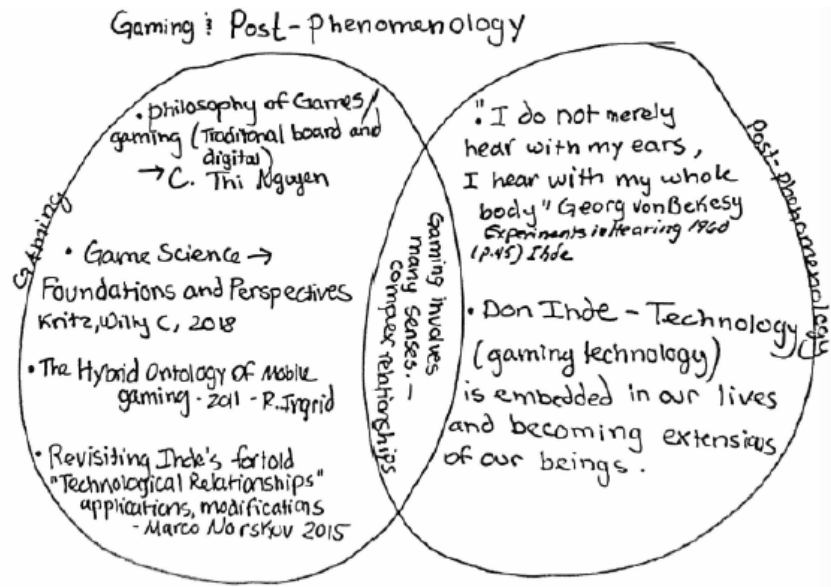 Gaming & Post-phenomenology
Gaming
• philosophy of Games/
gaming (Traditional board and
digital)
→ C. Thi Nguyen
• Game Science →
Foundations and Perspectives
Kritz, Willy C, 2018
• The Hybrid Ontology of Mobile
gaming - 2011 - R. Ingrid
• Revisiting Ihde's fortold
"Technological Relationships"
applications, modifications
- Marco Norskuv 2015
Gaming involves
many senses. —
complex relationships
Post-phenomenology
• "I do not merely
hear with my ears,
I hear with my whole
body" Georg von Bekesy
Experiments in Hearing 1960
(p.45) Ihde
• Don Ihde - Technology
(gaming technology)
is embedded in our lives
and becoming extensions
of our beings.